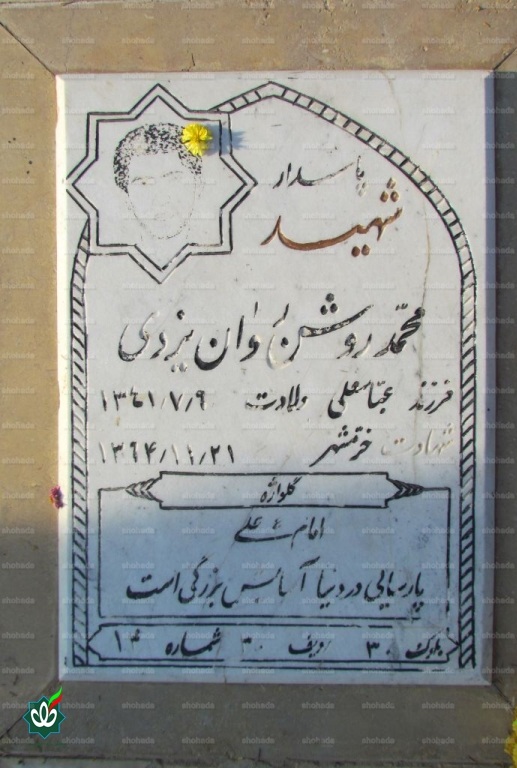 پاسدار
شهید
محمّد روشن روان یزدی
فرزند عباسعلی ولادت ۱۳۴۱/۷/۹
شهادت خرمشهر ۱۳۶۴/۱۱/۲۱
گلواژه
امام علی
پارسایی در دنیا آسایش بزرگی است
بلوک ۳۰ ردیف ۳۰ شماره ۱۴